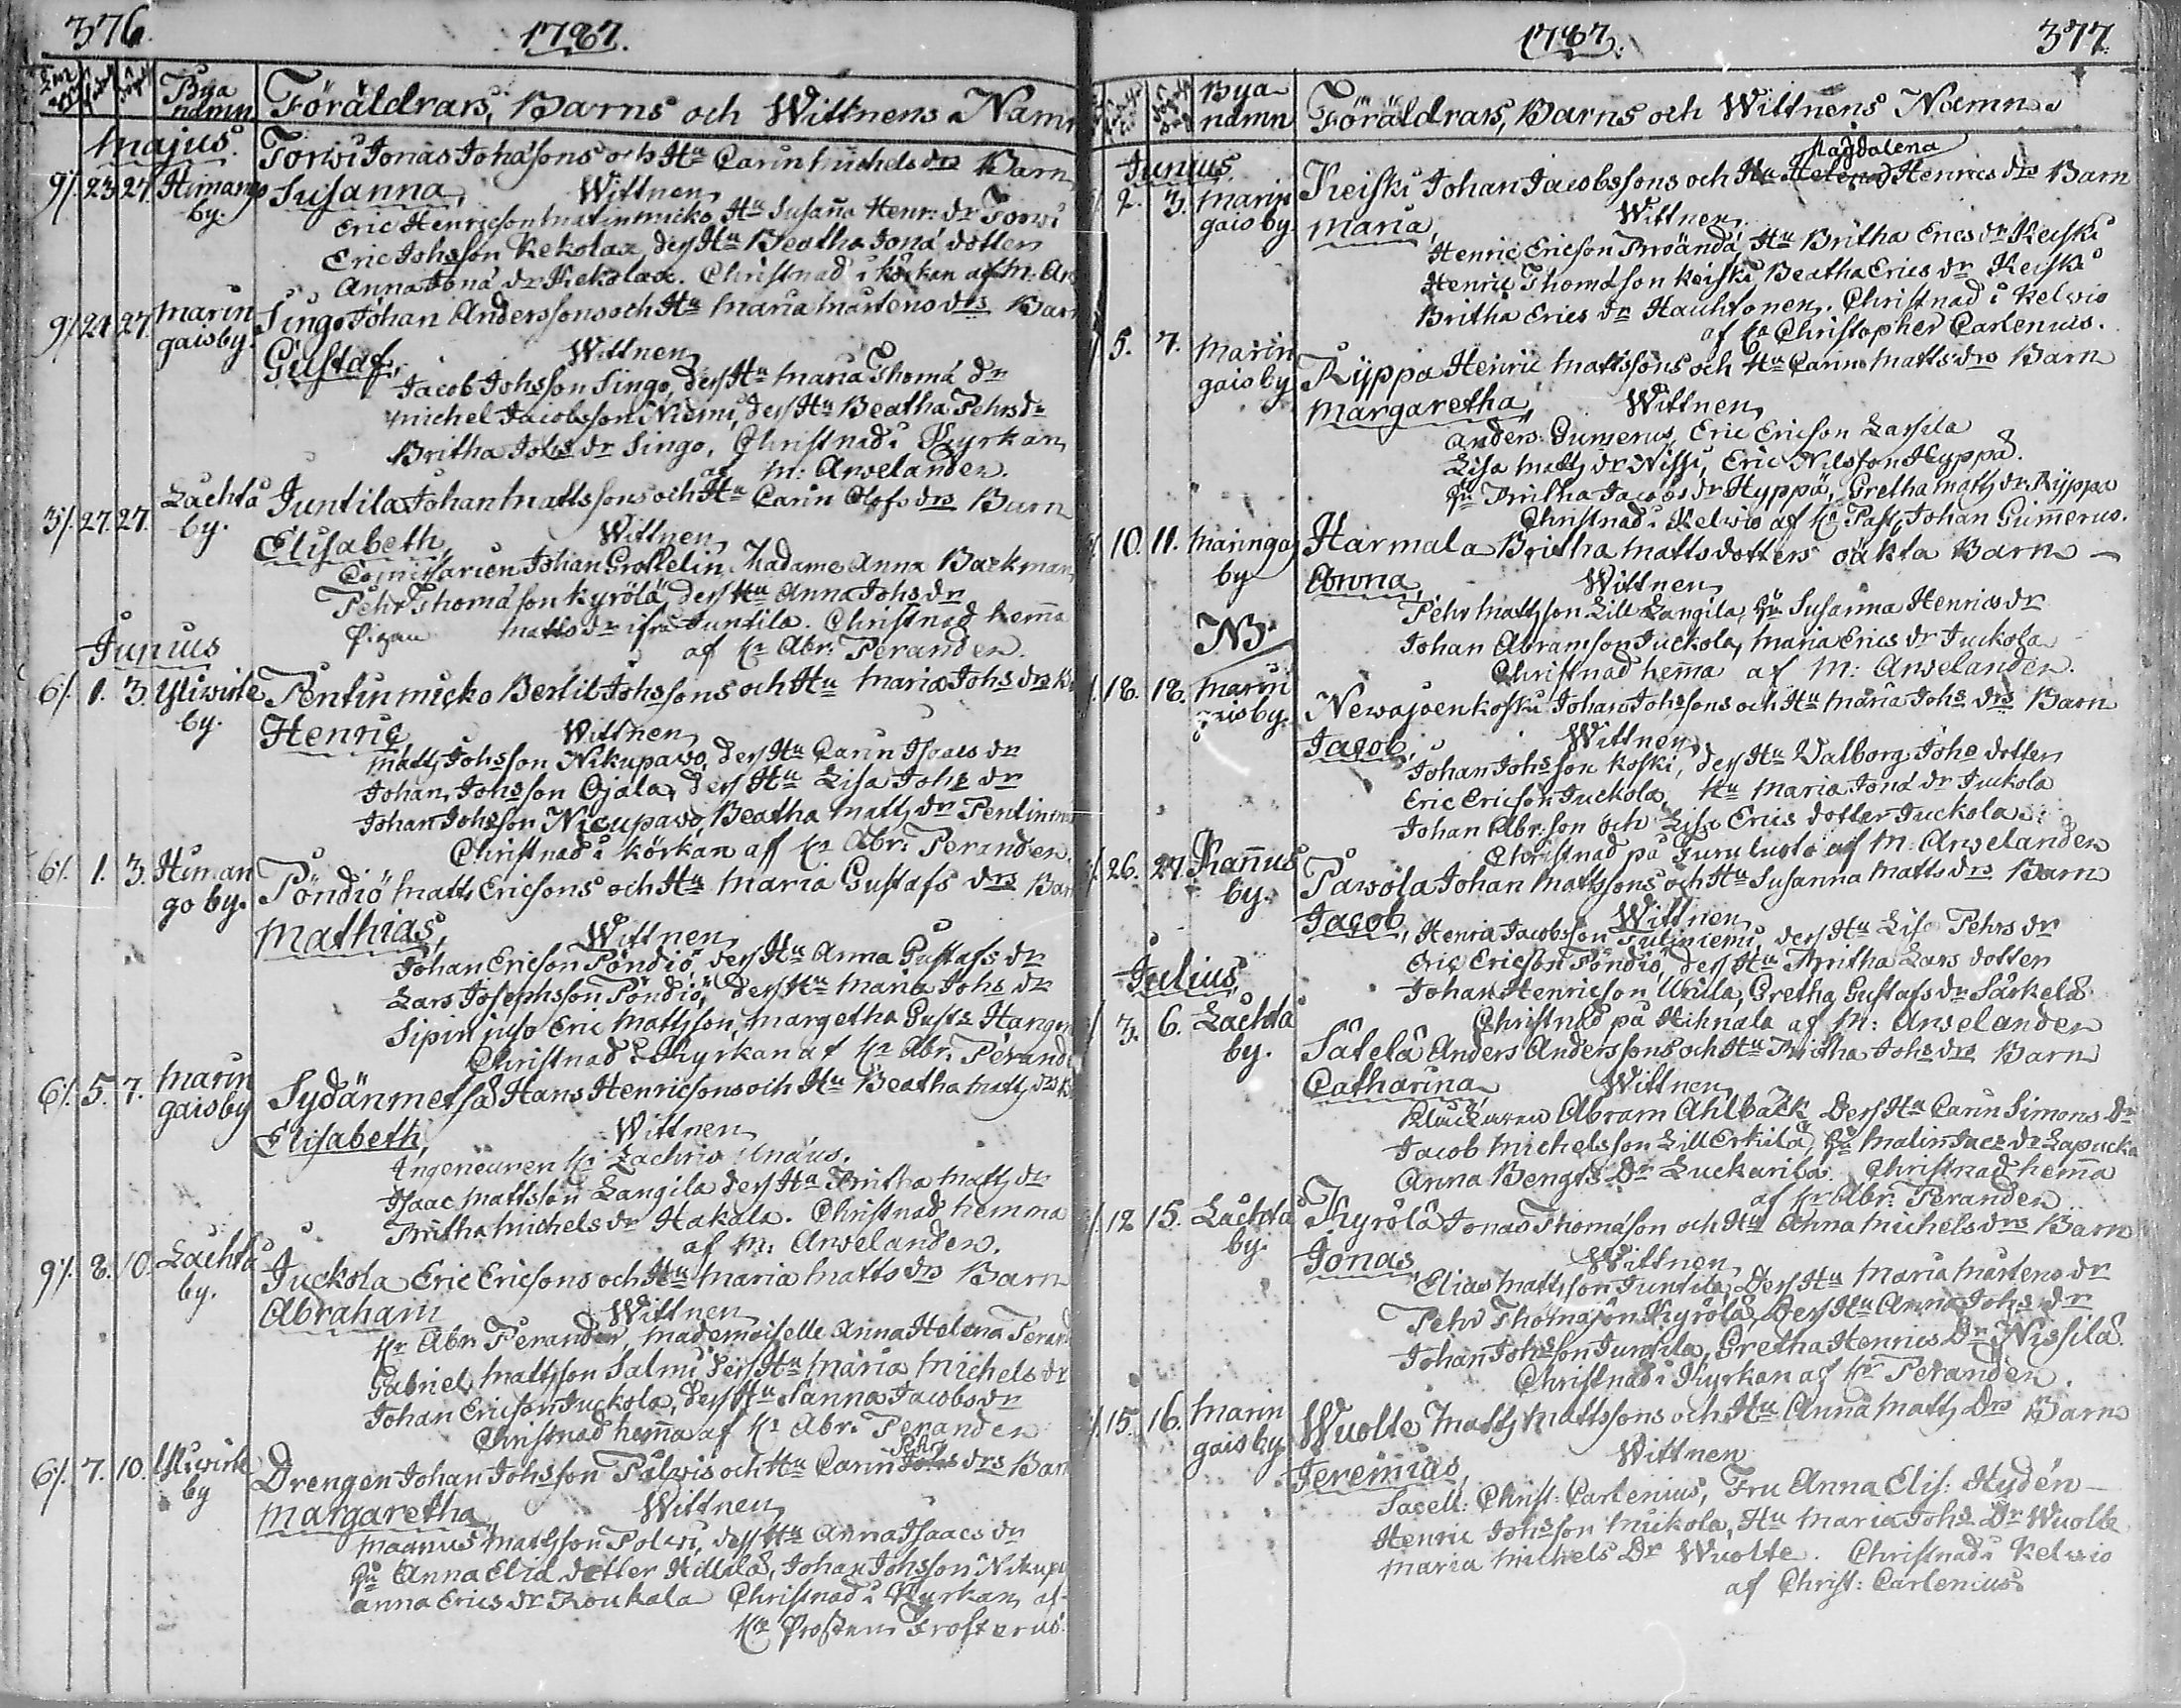 376.
1787.
Bya namn
Föräldrars, Barns och Wittnens Namn
Majus.
9/. 23 27. Himango by.
Torwi Jonas Johāsons och Hu Carin Michels drs Barn
Susanna, Wittnen
Eric Henricson Matinmicko, Hu Susaña Henr: dr Torwi
Eric Johsson Kekolax, dess Hu Beatha Jonā dotter
Anna Jonā dr Kekolax. Christnad i körkan af M: Ar
9/. 24 27. Marin gaisby.
Singo Johan Anderssons och Hu Maria Mårtens drs Bar
Gustaf, Wittnen
Jacob Johsson Singo, dess Hu Maria Thomā dr
Michel Jacobsson Niemi, dess Hu Beatha Pehrs dr
Britha Johs dr Singo, Christnad i Kyrkan
af M: Arwelander.
3/. 27. 27. Lachta by.
Juntila Johan Mattssons och Hu Carin Olofs drs Barn
Elisabeth, Wittnen
Comissarien Johan Grotelin, Madame Anna Backman
Pehr Thomāson Kyrölä dess Hu Anna Johs dr
Pigan Matts dr ifrå Juntila. Christnad hem̄a
af Hr Abr: Peranden.
Junius
6/. 1. 3. Yliwirte by.
Pentinmicko Bertil Johssons och Hu Maria Johs drs B
Henric, Wittnen
Matts Johsson Nikupawo, dess Hu Carin Isaacs dr
Johan Johsson Ojala, dess Hu Lisa Johs dr
Johan Johsson Nicupawo, Beatha Matts dr Pentinm
Christnad i körkan aff Hr Abr: Peranden.
6/. 1. 3. Himan go by.
Pöndiö Matts Ericsons och Hu Maria Gustafs drs Bar
Mathias, Wittnen
Johan Ericson Pöndiö, dess Hu Anna Gustafs dr
Lars Josephsson Pöndiö, dess Hu Maria Johs dr
Eric Mattsson, Margetha Gusts
Christnad i Kyrkan af Hr Abr: Perande
6/. 5. 7. Marin gaisby
Sydänmetsä Hans Henricsons och Hu Beatha Matts drs B
Elisabeth, Wittnen
Ingeneuren Hr Zachris
Isaac Mattsson Långila dess Hu Britha Matts dr
Britha Michels dr Hakala. Christnad hemma
af M: Arwelanden.
9/. 8. 10. Lachta by.
Juckola Eric Ericsons och Hu Maria Matts drs Barn
Abraham Wittnen
Hr Abr: Perander, Mademoiselle Anna Helena Perand
Gabriel Mattsson Salmi, dess Hu Maria Michels dr
Johan Ericson Juckola, dess Hu Sanna Jacobs dr
Christnad hem̄a af Hr Abr: Peranden
6/. 7. 10. Yliwirte by
Drengen Johan Johsson Pålwis och Hu Carin Johs Pehrs drs Barn
Margaretha, Wittnen
Magnus Mattsson Polwi, dess Hu Anna Isaacs dr
Qu Anna Eliā dotter Hillilä, Johan Johsson Nikup
Anna Erics dr Koukala Christnad i Kyrkan af
Hr Prosten Frosterus.
1787.
377.
Bya namn
Föräldrars, Barns och Wittnens Namn
Junius.
2. 3. Marin gaisby.
Keiski Johan Jacobssons och Hu Helena Magdalena Henrics drs Barn
Maria, Wittnen
Henric Ericson Pröändä Hu Britha Erics dr Keiski
Henric Thomāson Keiski Beatha Erics dr Keiski
Britha Erics dr Hauhtonen. Christnad i Kelwio
af Hr Christopher Carlenius.
5. 7. Marin gaisby
Ryppa Henric Mattssons och Hu Carin Matts drs Barn
Margaretha, Wittnen
Anders Gum̄erus, Eric Ericson Lassila
Lisa Matts dr Nissi, Eric Nilsson Hyppä.
Qu Britha Jacobs dr Hyppä, Gretha Matts dr Ryppa
Christnad i Kelwio af Hr Past: Johan Gum̄erus.
10. 11. Maringa by
NB
Harmala Britha Matts dotters oäkta Barn
Anna, Wittnen
Pehr Mattsson Lill Långila, Qu Susanna Henrics dr
Johan Abramson Juckola, Maria Erics dr Juckola
Christnad hem̄a af M: Arwelanden.
18. 18. Marin gaisby.
Newajoenkoski Johan Johssons och Hu Maria Johs drs Barn
Jacob, Wittnen
Johan Johsson Koski, dess Hu Walborg Johs dotter
Eric Ericson Juckola, Hu Maria Jonā dr Juckola
Johan Abr:son och Lisa Erics dotter Juckola
Christnad på Furuluoto af M: Arwelanden
26. 27. Kan̄us by.
Pawola Johan Mattssons och Hu Susanna Matts drs Barn
Jacob, Wittnen
Henric Jacobsson Tulin̄iemi, dess Hu Lisa Pehrs dr
Eric Ericson Pöndiö, dess Hu Britha Lars dotter
Johan Henricson Urilla, Gretha Gustafs dr Särkelä
Christnad på Hihnala af M: Arwelanden
Julius,
3. 6. Lachta by.
Såtelä Anders Anderssons och Hu Britha Johs drs Barn
Catharina, Wittnen
Kluckaren Abram Ahlbäck Dess Hu Carin Simons Dr
Jacob Michelsson Lill Erkilä, Qu Malin Jacs dr Lapucka
Anna Bengts Dr Luckarila. Christnad hem̄a
af Hr Abr: Peranden
12 15. Lachta by.
Kyrölä Jonas Thomāson och Hu Anna Michels drs Barn
Jonas Wittnen
Elias Mattsson Juntila, Dess Hu Maria Mårtens dr
Pehr Thomāson Kyrölä, Dess Hu Anna Johs dr
Johan Johsson Juntila, Gretha Henrics Dr Nissilä.
Christnad i Kyrkan af Hr Peranden.
15. 16. Marin gaisby.
Wuolte Matts Mattssons och Hu Anna Matts Drs Barn
Jeremias, Wittnen
Sacell: Christ: Carlenius, Fru Anna Elis: Hydén
Henric Johsson Muckola, Hu Maria Johs Dr Wuolte
Maria Michels Dr Wuolte. Christnad i Kelwio
af Christ: Carlenius